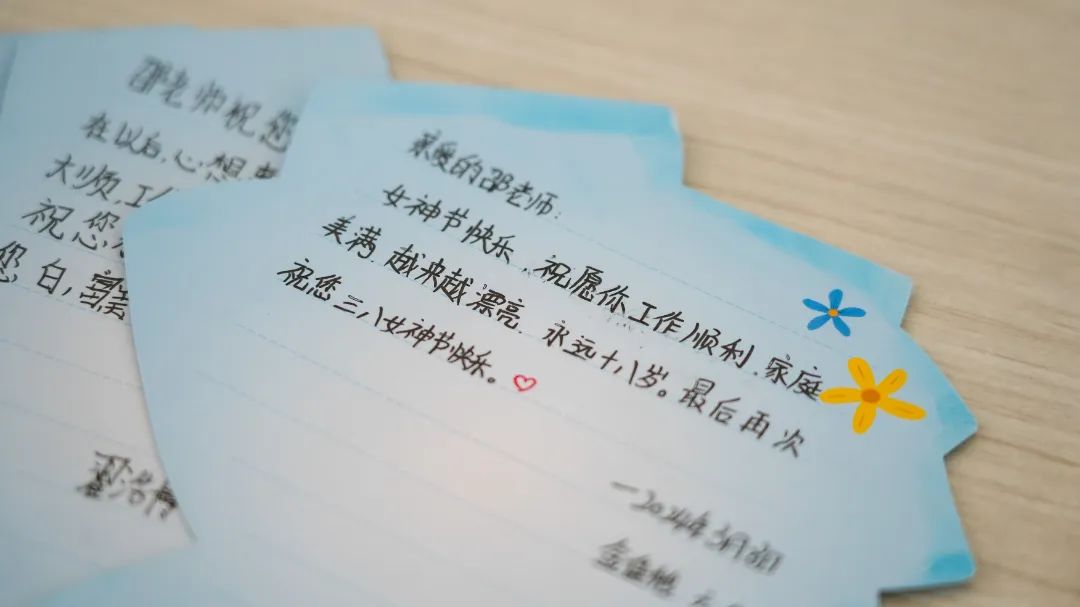 邵老师祝您
在以后,心想
大顺,工
祝您
您 白,
亲爱的邵老师:
女神节快乐,祝愿你工作顺利.家庭
美满.越来越漂亮.永远十八岁。最后再次
祝您三八女神节快乐。
一2024年3月8日